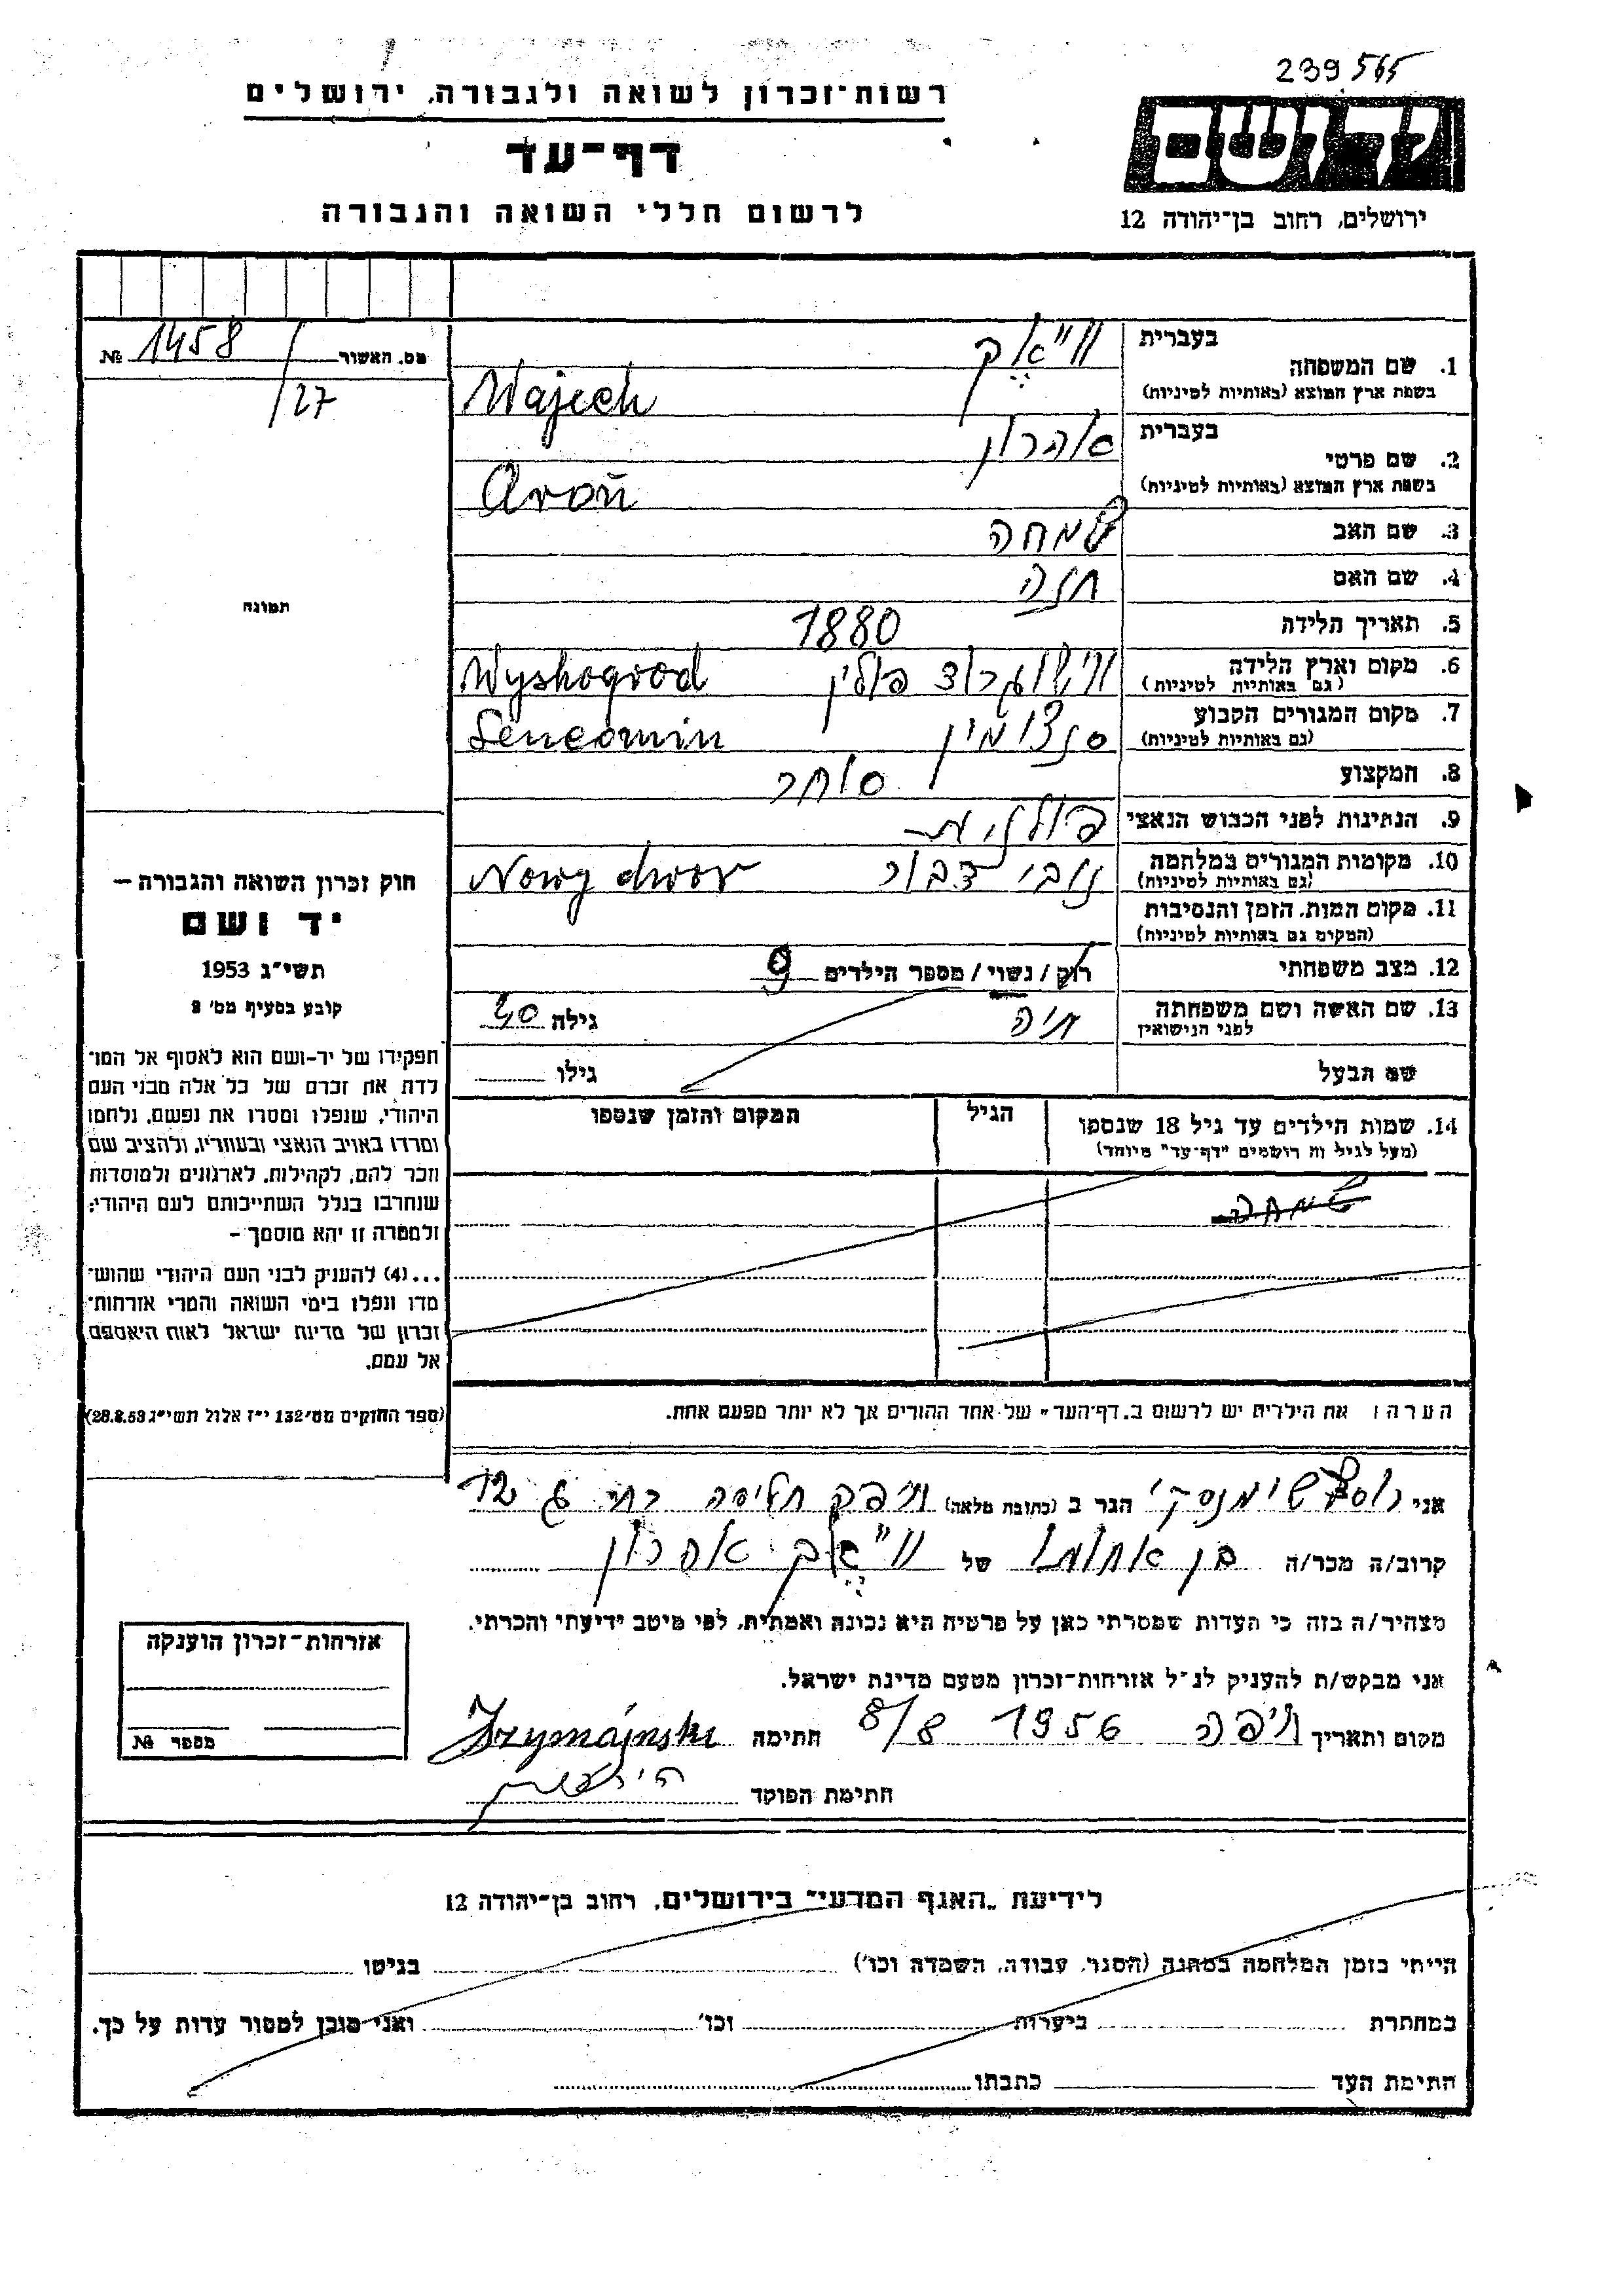 239565
רשות־זכרון לשואה ולגבורה, ירושלים
דף־עד
לרשום חללי השואה והגבורה
יד ושם
ירושלים, רחוב בן־יהודה 12
מס. האשור 1458 № /27
1. שם המשפחה בעברית
בשפת ארץ המוצא (באותיות לטיניות) Wajech
2. שם פרטי בעברית אהרון
בשפת ארץ המוצא (באותיות לטיניות) Aron
3. שם האב שמחה
4. שם האם חנה
5. תאריך הלידה 1880
6. מקום וארץ הלידה (גם באותיות לטיניות) ווישוגרוד פולין Wyshogrod
7. מקום המגורים הקבוע (גם באותיות לטיניות) סנצומין Sencomin
8. המקצוע סוחר
9. הנתינות לפני הכבוש הנאצי פולנית
10. מקומות המגורים במלחמה (גם באותיות לטיניות) נובי דבור Nowy dwor
11. מקום המות, הזמן והנסיבות
(המקום גם באותיות לטיניות)
12. מצב משפחתי רוק / נשוי / מספר הילדים 9
13. שם האשה ושם משפחתה לפני הנישואין חיה גילה
שם הבעל גילו
14. שמות הילדים עד גיל 18 שנספו הגיל המקום והזמן שנספו
(מעל לגיל זה רושמים "דף־עד" מיוחד)
שמחה
הערה: את הילדים יש לרשום ב„דף־העד" של אחד ההורים אך לא יותר מפעם אחת.
תמונה
חוק זכרון השואה והגבורה –
יד ושם
תשי"ג 1953
קובע בסעיף מס' 2
תפקידו של יד-ושם הוא לאסוף אל המו־
לדת את זכרם של כל אלה מבני העם
היהודי, שנפלו ומסרו את נפשם, נלחמו
ומרדו באויב הנאצי ובעוזריו, ולהציב שם
וזכר להם, לקהילות, לארגונים ולמוסדות
שנחרבו בגלל השתייכותם לעם היהודי;
ולמטרה זו יהא מוסמך –
...(4) להעניק לבני העם היהודי שהוש־
מדו ונפלו בימי השואה והמרי אזרחות־
זכרון של מדינת ישראל לאות היאספם
אל עמם.
(ספר החוקים מס׳ 132 י״ז אלול תשי״ג 28.8.53)
אני שימנסקי הגר ב (כתובת מלאה) 12
קרוב/ה מכר/ה בן אחותו של אהרון
מצהיר/ה בזה כי העדות שמסרתי כאן על פרטיה היא נכונה ואמתית, לפי מיטב ידיעתי והכרתי.
אני מבקש/ת להעניק לנ״ל אזרחות־זכרון מטעם מדינת ישראל.
מקום ותאריך חיפה 8/8 1956 חתימה Szymański
חתימת הפוקד
אזרחות־זכרון הוענקה
מספר №
לידיעת „האגף המדעי" בירושלים, רחוב בן־יהודה 12
הייתי בזמן המלחמה במחנה (הסגר, עבודה, השמדה וכו׳) בגיטו
במחתרת ביערות וכו׳ ואני מוכן למסור עדות על כך.
חתימת העד כתבתו